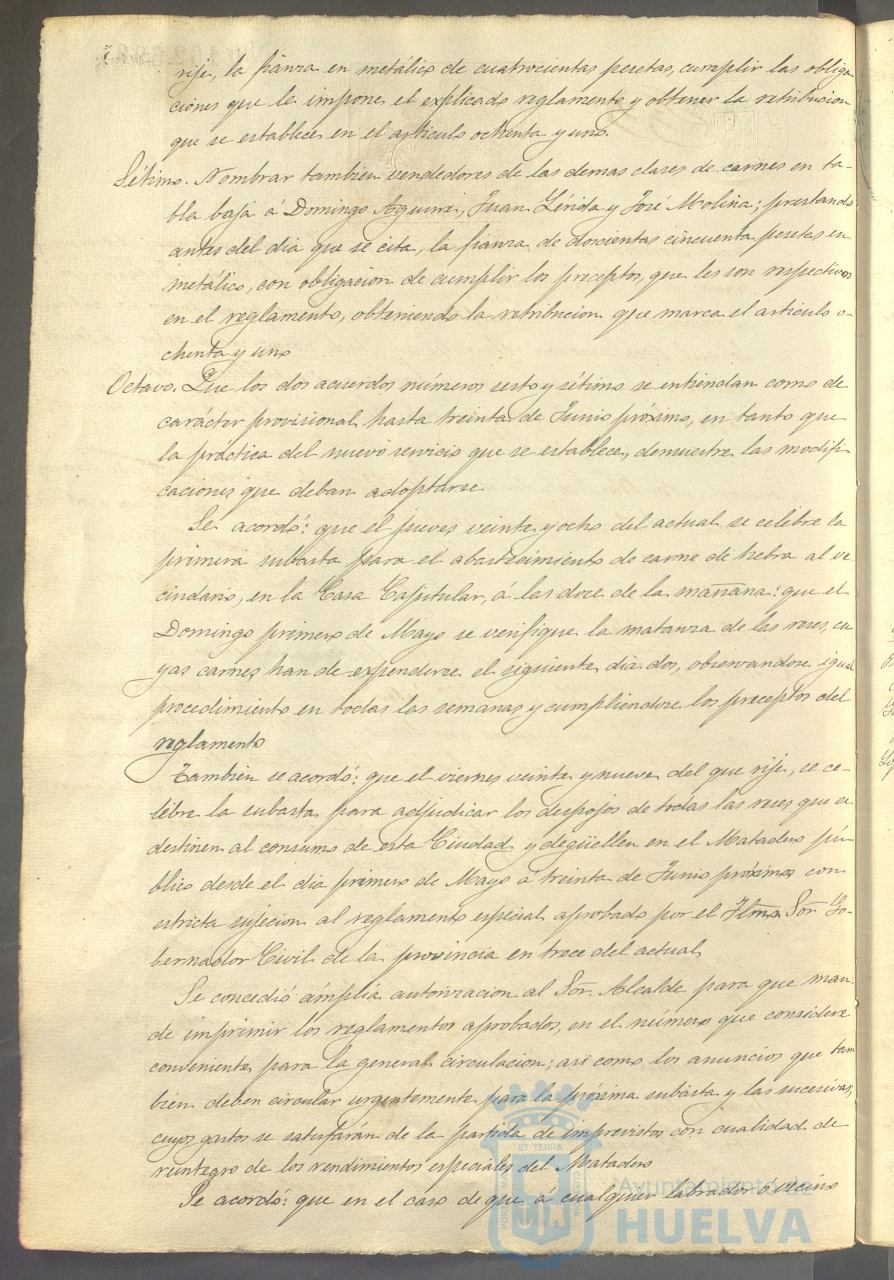 rije, la fianza en metálico de cuatrocientas pesetas, cumplir las obliga
ciones que le impone el explicado reglamento y obtener la retribucion
que se establece en el articulo ochenta y uno.
Sétimo. Nombrar tambien vendedores de las demas clases de carnes en ta-
bla baja á Domingo Aguirre, Juan Lérida y José Molina; prestando
antes del dia que se cita, la fianza de doscientas cincuenta pesetas en
metálico, con obligacion de cumplir los preceptos, que les son respectivos
en el reglamento, obteniendo la retribucion que marca el articulo o-
chenta y uno
Octavo. Que los dos acuerdos números sesto y sétimo se entiendan como de
carácter provisional hasta treinta de Junio próximo, en tanto que
la práctica del nuevo servicio que se establece, demuestre las modifi
caciones que deban adoptarse
Se acordó: que el jueves veinte y ocho del actual se celebre la
primera subasta para el abastecimiento de carne de hebra al ve
cindario, en la Casa Capitular, á las doce de la mañana: que el
Domingo primero de Mayo se verifique la matanza de las reses, cu
yas carnes han de expenderse el siguiente dia dos, observandose igual
procedimiento en todas las semanas y cumpliendose los preceptos del
reglamento
Tambien se acordó: que el viernes veinte y nueve del que rije, se ce-
lebre la subasta para adjudicar los despojos de todas las reses que se
destinen al consumo de esta Ciudad y degüellen en el Matadero pú-
blico desde el dia primero de Mayo á treinta de Junio próximo con
estricta sujecion al reglamento especial aprobado por el Iltmo. Sor. Go-
bernador Civil de la provincia en trece del actual
Se concedió ámplia autorizacion al Sor. Alcalde para que man-
de imprimir los reglamentos aprobados, en el número que considere
conveniente para la general circulacion; asi como los anuncios que tam
bien deben circular urgentemente para la próxima subasta y las sucesivas,
cuyos gastos se satisfarán de la partida de imprevistos con cualidad de
reintegro de los rendimientos especiales del Matadero
Se acordó: que en el caso de que á cualquier labrador o vecino
ET TERRÆ
Ayuntamiento de
HUELVA